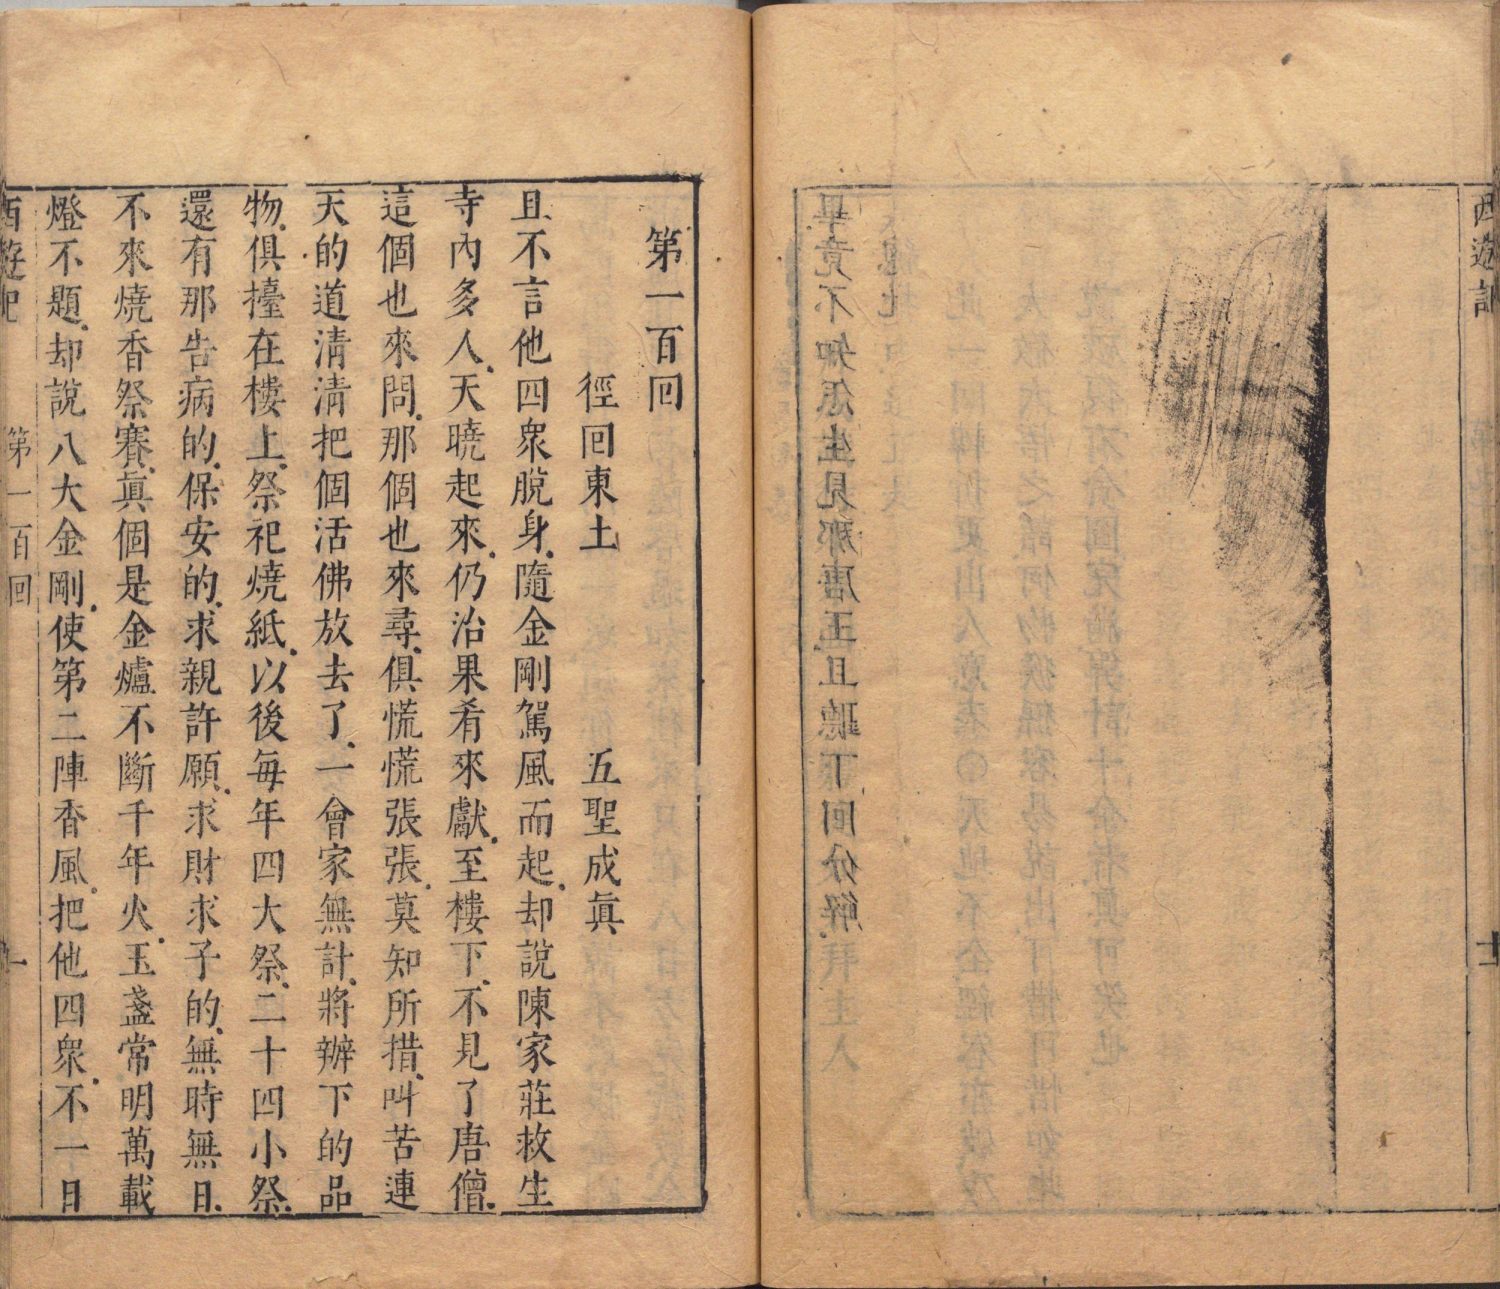 西遊記 十一
畢竟不知怎生見那唐王且聽下回分解
第一百回
徑回東土 五聖成眞
且不言他四衆脫身.隨金剛駕風而起.却說陳家莊救生
寺內多人.天曉起來.仍治果肴來獻.至樓下.不見了唐僧.
這個也來問.那個也來尋.俱慌慌張張.莫知所措.叫苦連
天的道淸淸把個活佛放去了.一會家無計.將辦下的品
物.俱擡在樓上.祭祀燒紙.以後每年四大祭.二十四小祭.
還有那告病的.保安的.求親許願.求財求子的.無時無日.
不來燒香祭賽.眞個是金爐不斷千年火.玉盞常明萬載
燈不題.却說八大金剛.使第二陣香風.把他四衆.不一日
西遊記 第一百回 一